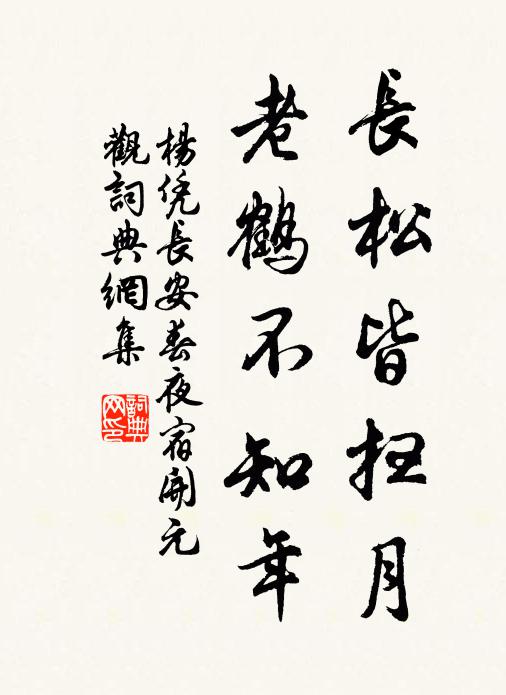 長松皆扫月
老鶴不知年
楊凭長安春夜宿開元
觀詞典網集
詞典
网印